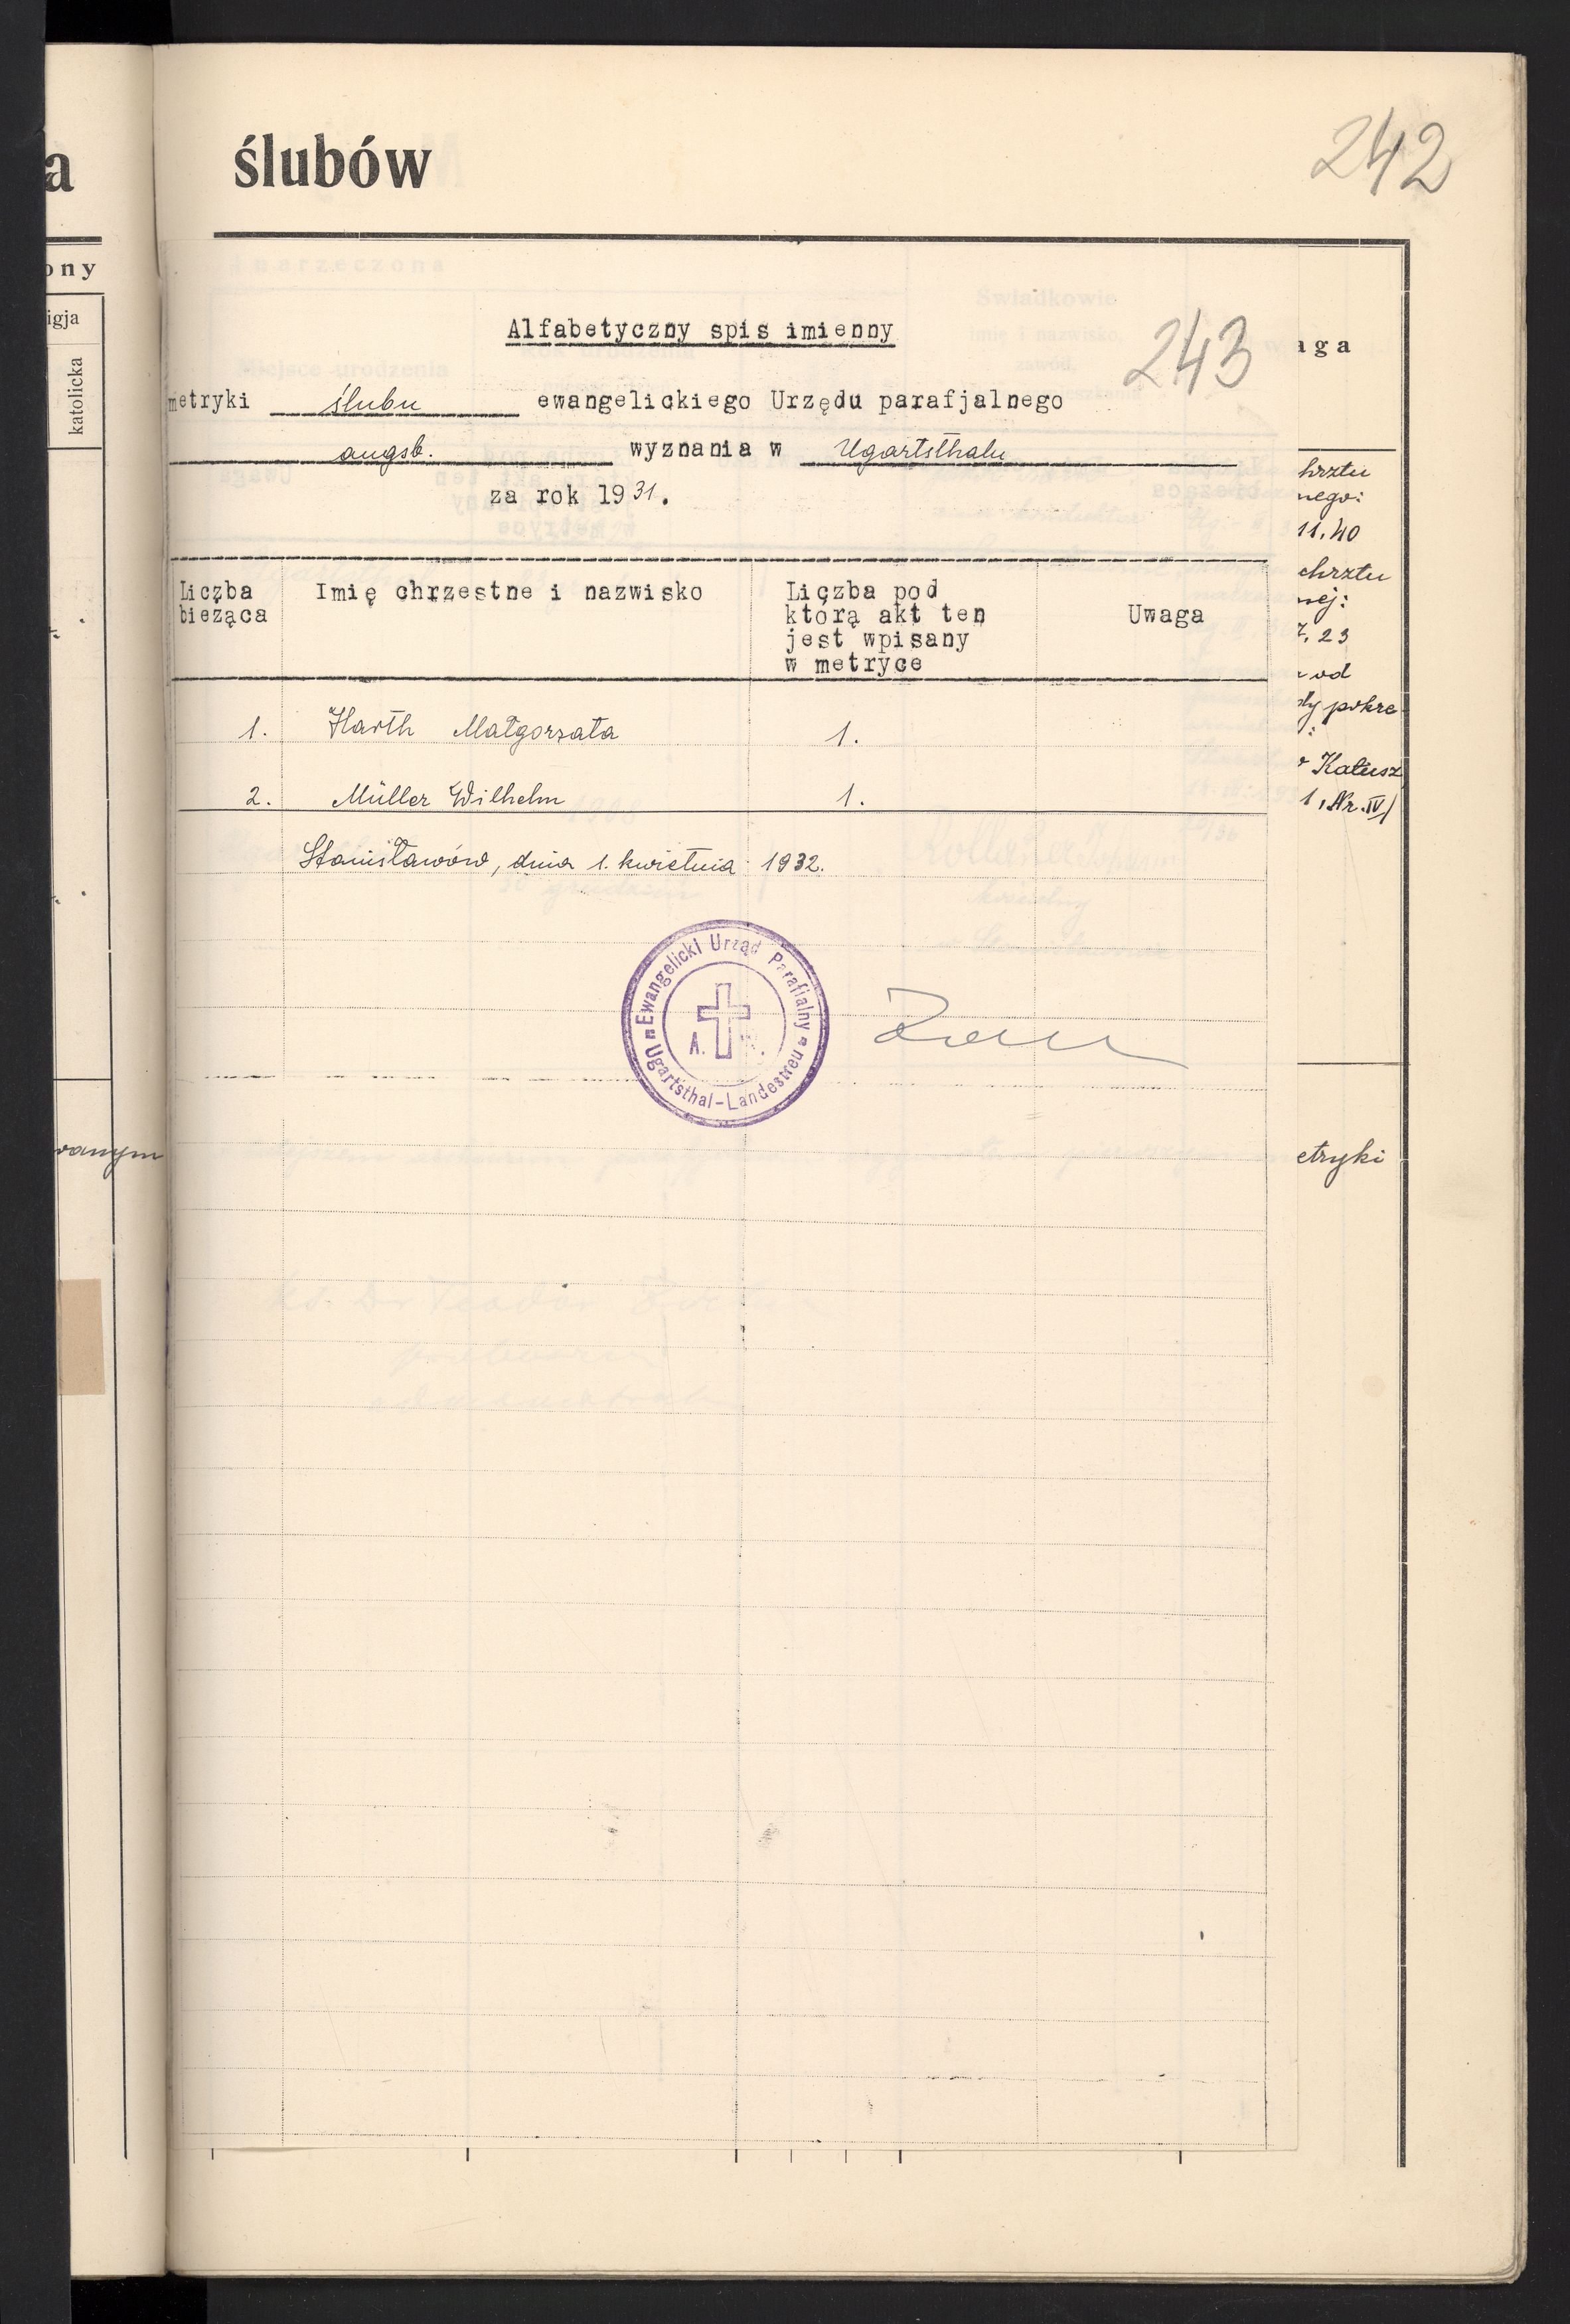 ślubów
242
ony
igja
katolicka
Alfabetyczny spis imienny
243
metryki ślubu ewangelickiego Urzędu parafjalnego
augsb. wyznania w Ugartsthalu
za rok 1931.
Liczba bieżąca
Imię chrzestne i nazwisko
Liczba pod
którą akt ten
jest wpisany
w metryce
Uwaga
1. Harth Małgorzata 1.
2. Müller Wilhelm 1.
Stanisławów, dnia 1. kwietnia 1932.
Ewangelicki Urząd Parafialny
Ugartsthal-Landestreu
A.
aga
hrztu
nego:
11.40
chrztu
nej:
7.23
od
dy pokre
Kałusz
1, Nr. IV/
etryki
wanym